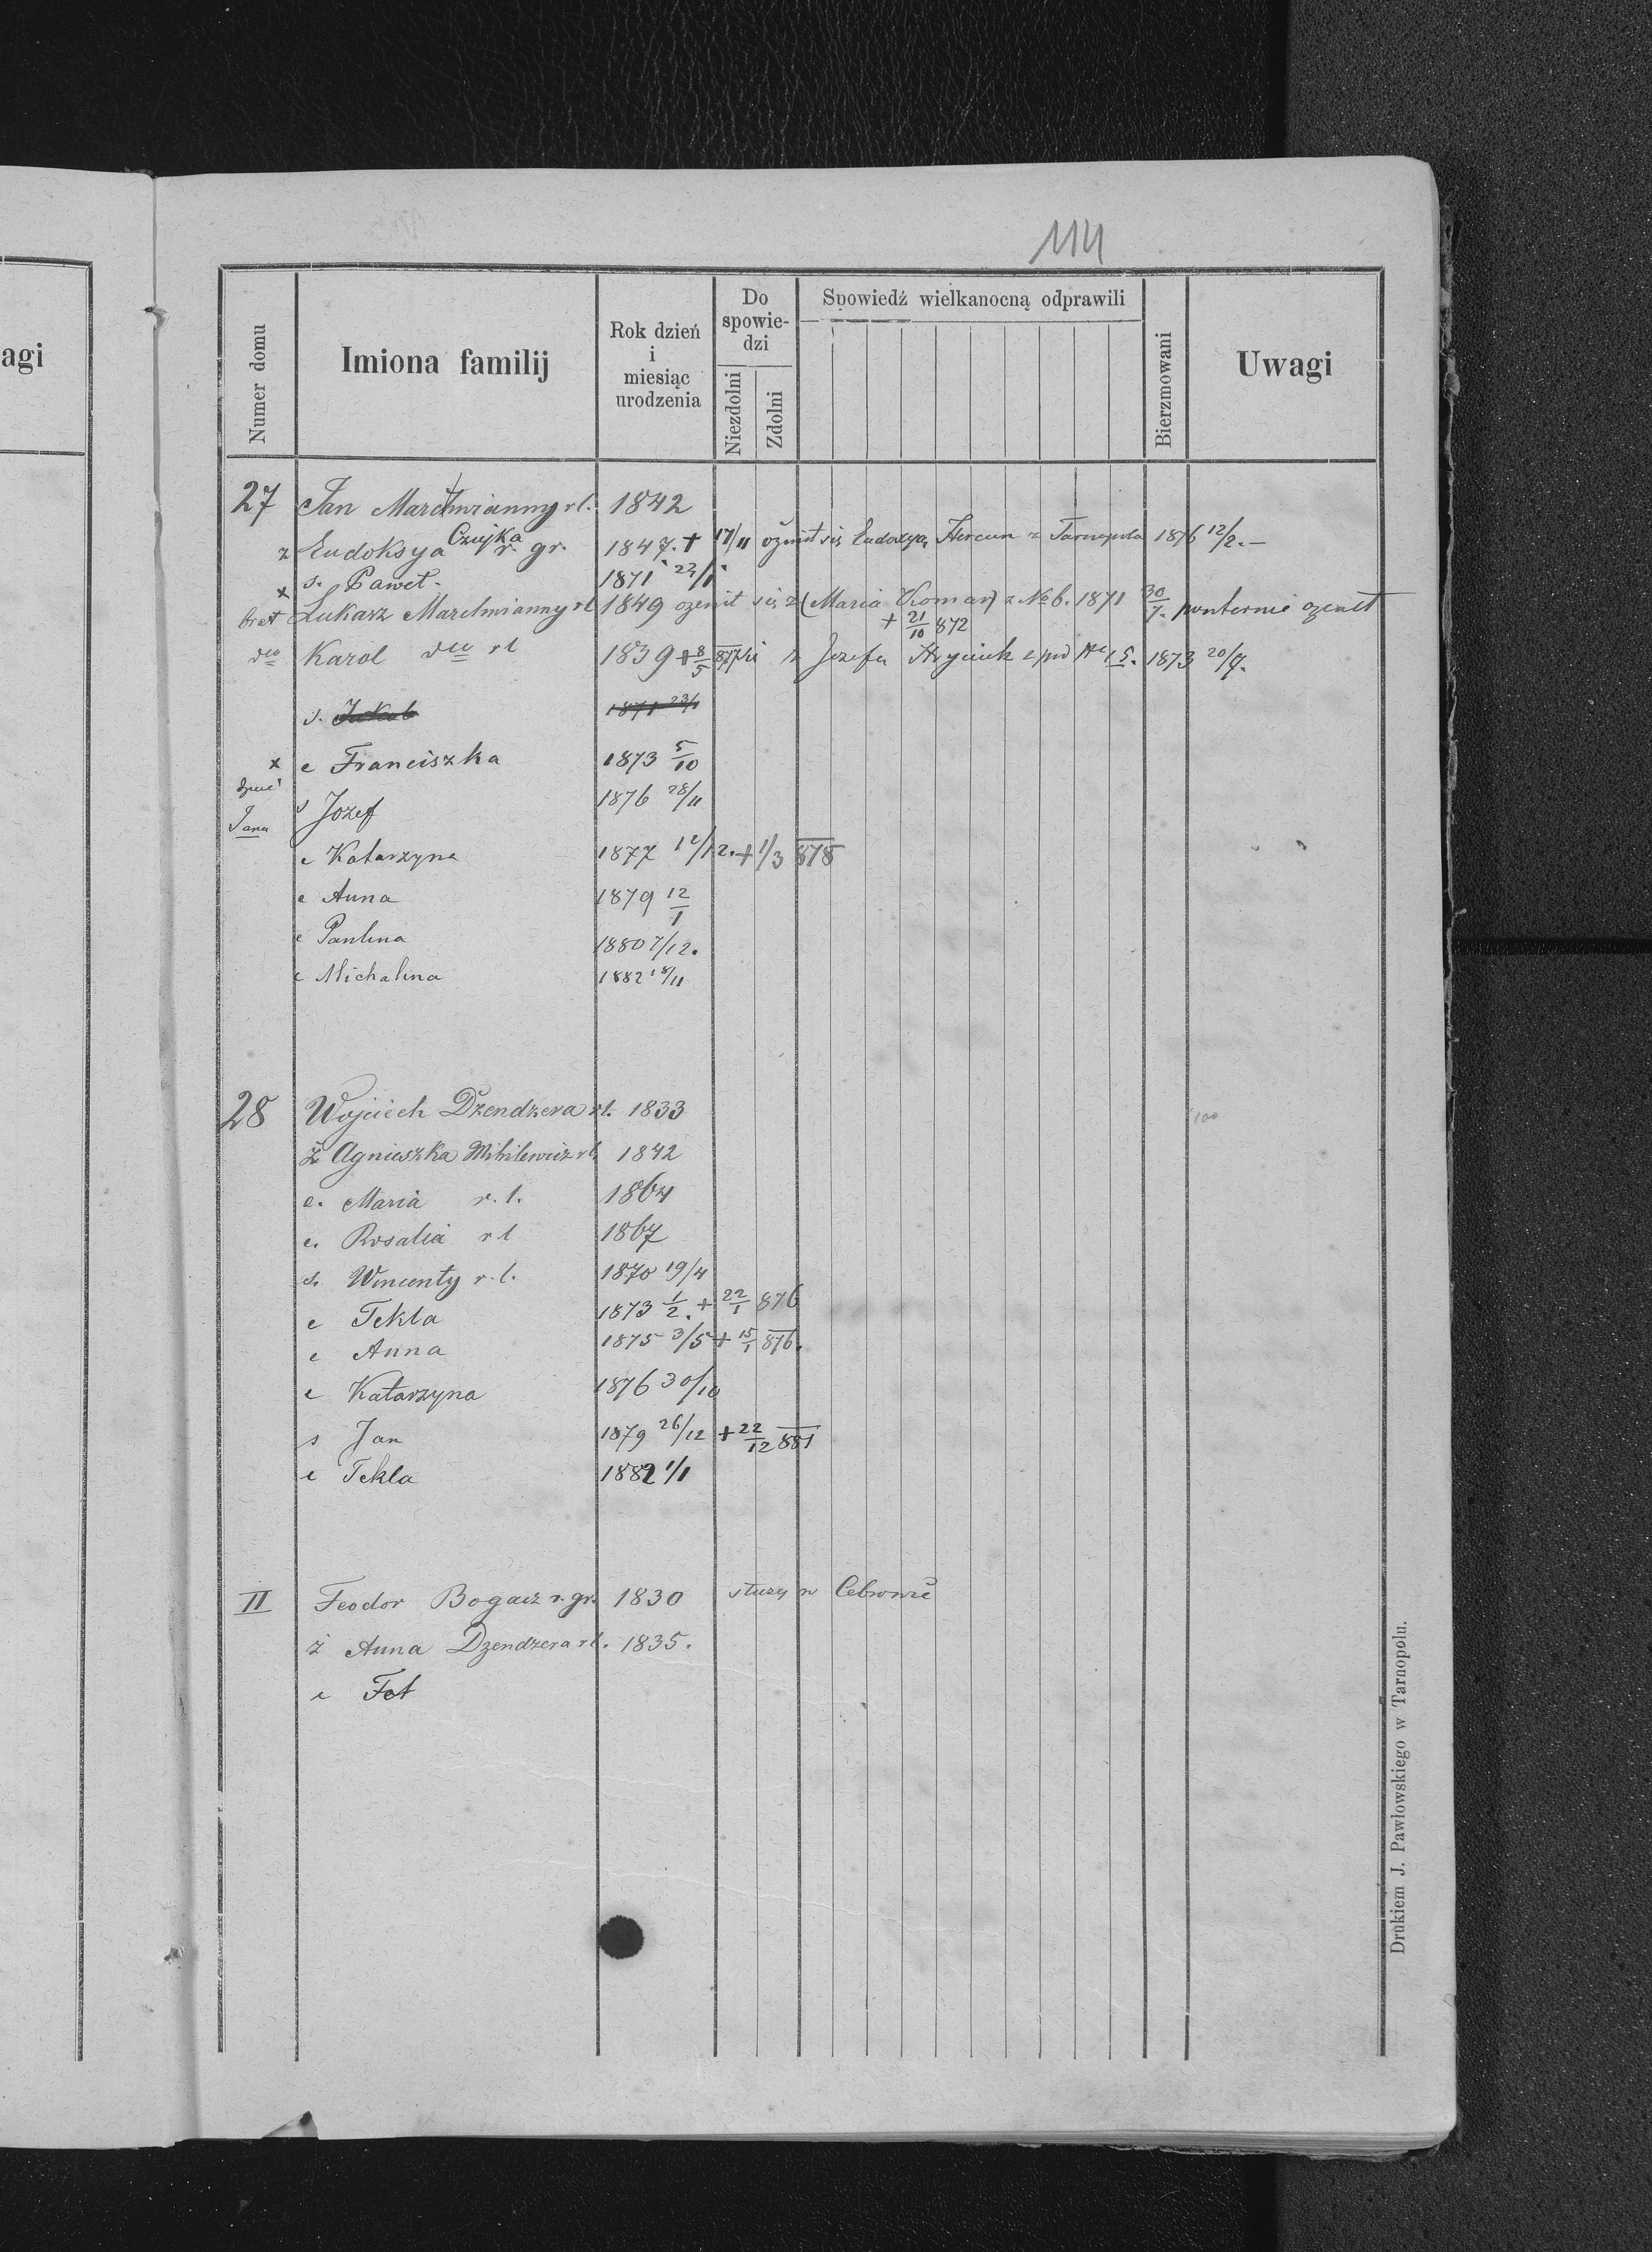 114
agi
Numer domu
Imiona familij
Rok dzień i miesiąc urodzenia
Do spowiedzi
Niezdolni
Zdolni
Spowiedź wielkanocną odprawili
Bierzmowani
Uwagi
27 Jan Marchwianny rl. 1842
ż Eudoksya Czujka r. gr. 1847. + 17/11 ożenił się Eudoxyą Hercun z Tarnopola 1876 12/2. –
x s. Paweł. 1871 23/1
brat Łukasz Marchwianny rl 1849 ożenił się z (Maria Komar) z No 6. 1871 30/7. ponternie ożenił
+ 21/10 872
dto Karol dto rl 1839 + 8/5 877 się z Jozefą 1873 20/7.
s. Jakob 1871 23/1
x c Franciszka 1873 5/10
dzieci Jana
s Jozef 1876 28/11
c Katarzyna 1877 12/12. + 1/3 878
c Anna 1879 12/1
c Paulina 1880 7/12.
c Michalina 1882 18/11
28 Wojciech Dzendzera rl. 1833
ż Agnieszka Mihilewicz rl. 1842
c. Maria r. l. 1864
c. Rosalia r l 1867
s. Wincenty r. l. 1870 19/4
c Tekla 1873 1/2. + 22/1 876
c Anna 1875 3/5 + 15/1 876.
c Katarzyna 1876 30/10
s Jan 1879 26/12 + 22/12 881
c Tekla 1882 1/1
II Feodor Bogacz r. gr. 1830 służy w Cebrowie
ż Anna Dzendzera rl. 1835.
c Fet
Drukiem J. Pawłowskiego w Tarnopolu.